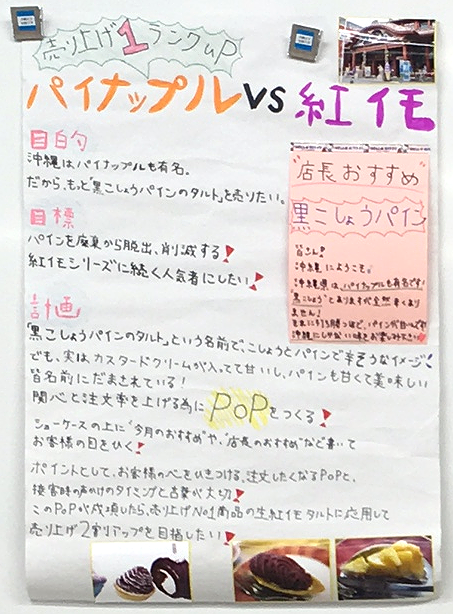 売り上げ1ランクuP
パイナップル VS 紅イモ
目的
沖縄は、パイナップルも有名。
だから、もっと「黒こしょうパインのタルト」を売りたい。
目標
パインを廃棄から脱出、削減する!
紅イモシリーズに続く人気者にしたい!
計画
「黒こしょうパインのタルト」という名前で、こしょうとパインで辛そうなイメージ!
でも、実はカスタードクリームが入ってて甘いし、パインも甘くて美味しい
皆名前にだまされている!
関心と注文率を上げる為にPoPをつくる!
ショーケースの上に"今月のおすすめ"や、"店長のおすすめ"など書いて
お客様の目をひく!
ポイントとして、お客様の心をひきつける、注文したくなるPoPと、
接客時の声かけのタイミングと言葉が大切!
このPoPが成功したら、売り上げNo1商品の生紅イモタルトに応用して
売り上げ2割りアップを目指したい!
"店長おすすめ"
黒こしょうパイン
皆さん!
沖縄にようこそ。
沖縄県は、パイナップルも有名です!
"黒こしょう"とありますが全然辛くあり
ません!